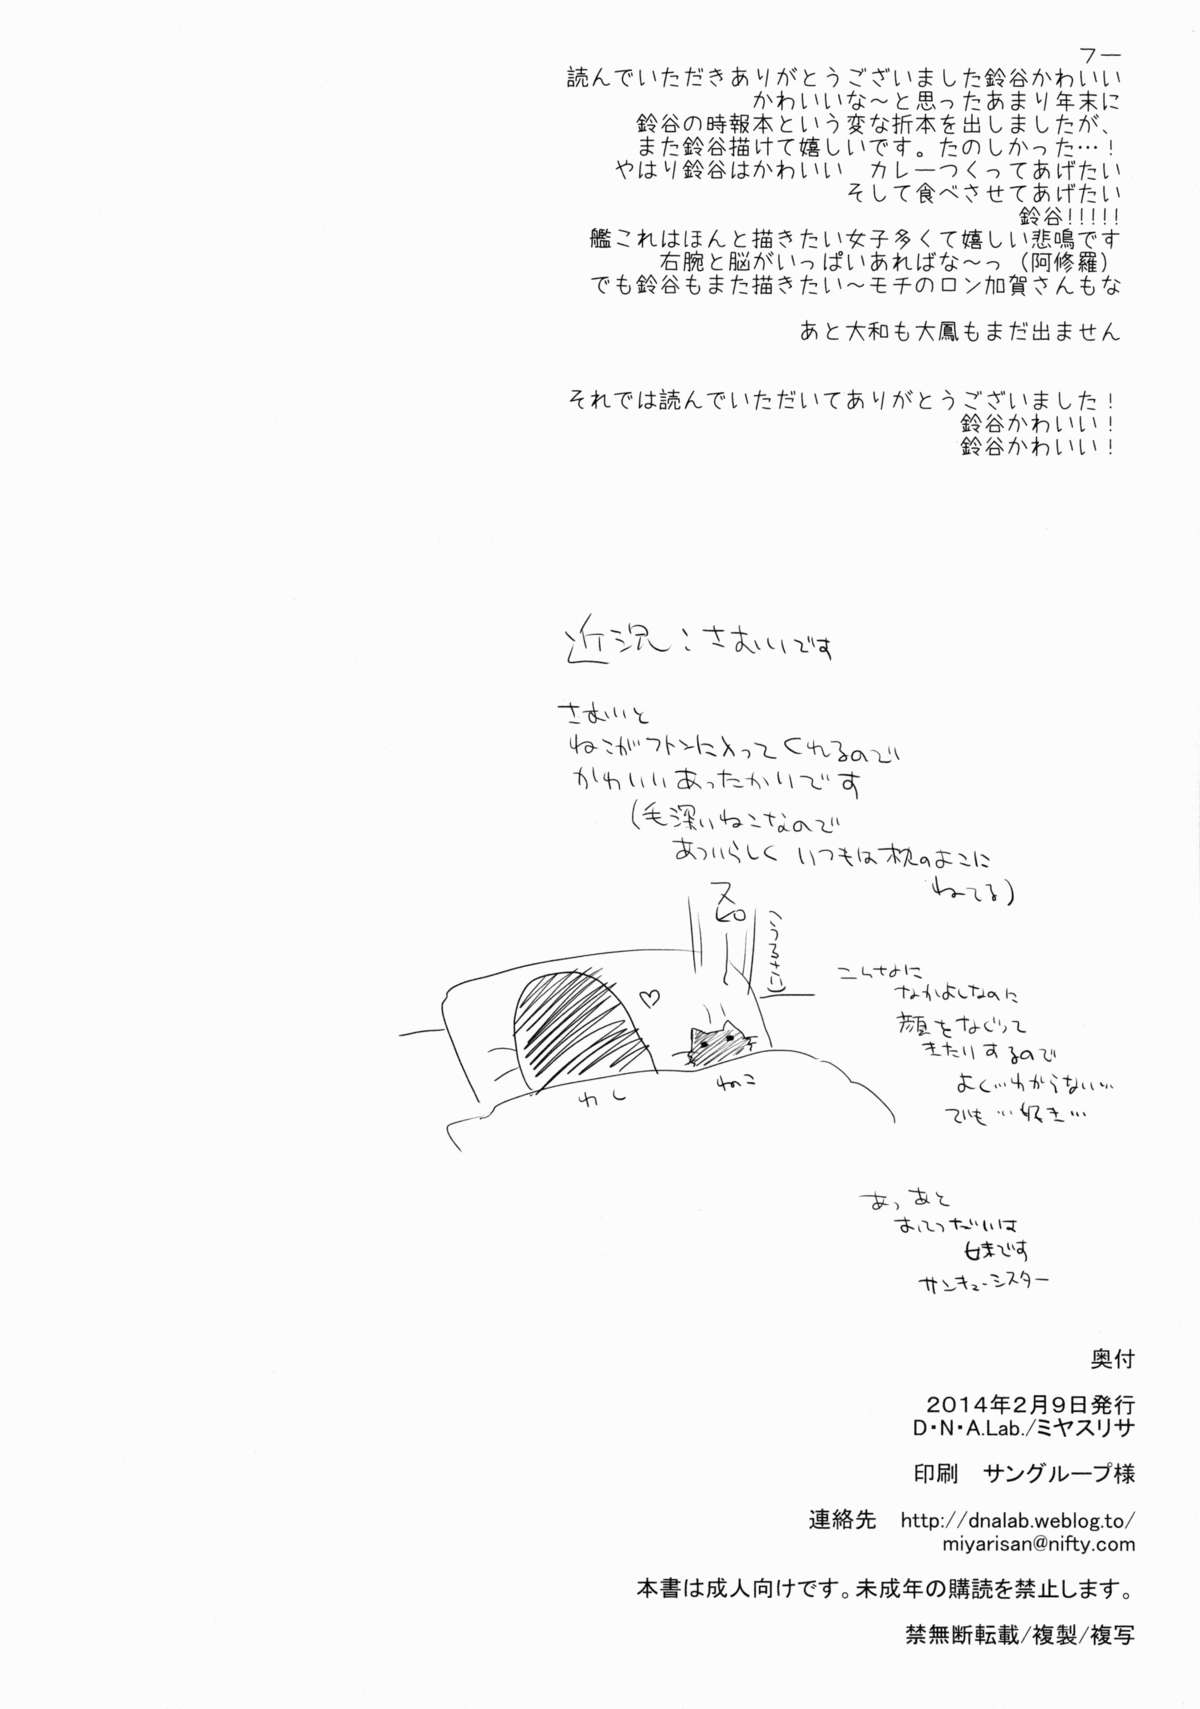 フー
読んでいただきありがとうございました鈴谷かわいい
かわいいな～と思ったあまり年末に
鈴谷の時報本という変な折本を出しましたが、
また鈴谷描けて嬉しいです。たのしかった…！
やはり鈴谷はかわいい　カレーつくってあげたい
そして食べさせてあげたい
鈴谷!!!!!
艦これはほんと描きたい女子多くて嬉しい悲鳴です
右腕と脳がいっぱいあればな～っ（阿修羅）
でも鈴谷もまた描きたい～モチのロン加賀さんもな
あと大和も大鳳もまだ出ません
それでは読んでいただいてありがとうございました！
鈴谷かわいい！
鈴谷かわいい！
近況：さむいです
さむいと
ねこがフトンに入ってくれるので
かわいいあったかいです
(毛深いねこなので
あついらしく いつもは枕のよこに
ねてる)
スピ
(うるさい)
こんなに
なかよしなのに
顔をなぐって
きたりするので
よく…わからない…
でも…好き…
わし
ねこ
あっあと
おてつだいは
妹です
サンキューシスター
奥付
2014年2月9日発行
D・N・A.Lab./ミヤスリサ
印刷　サングループ様
連絡先　http://dnalab.weblog.to/
miyarisan@nifty.com
本書は成人向けです。未成年の購読を禁止します。
禁無断転載/複製/複写